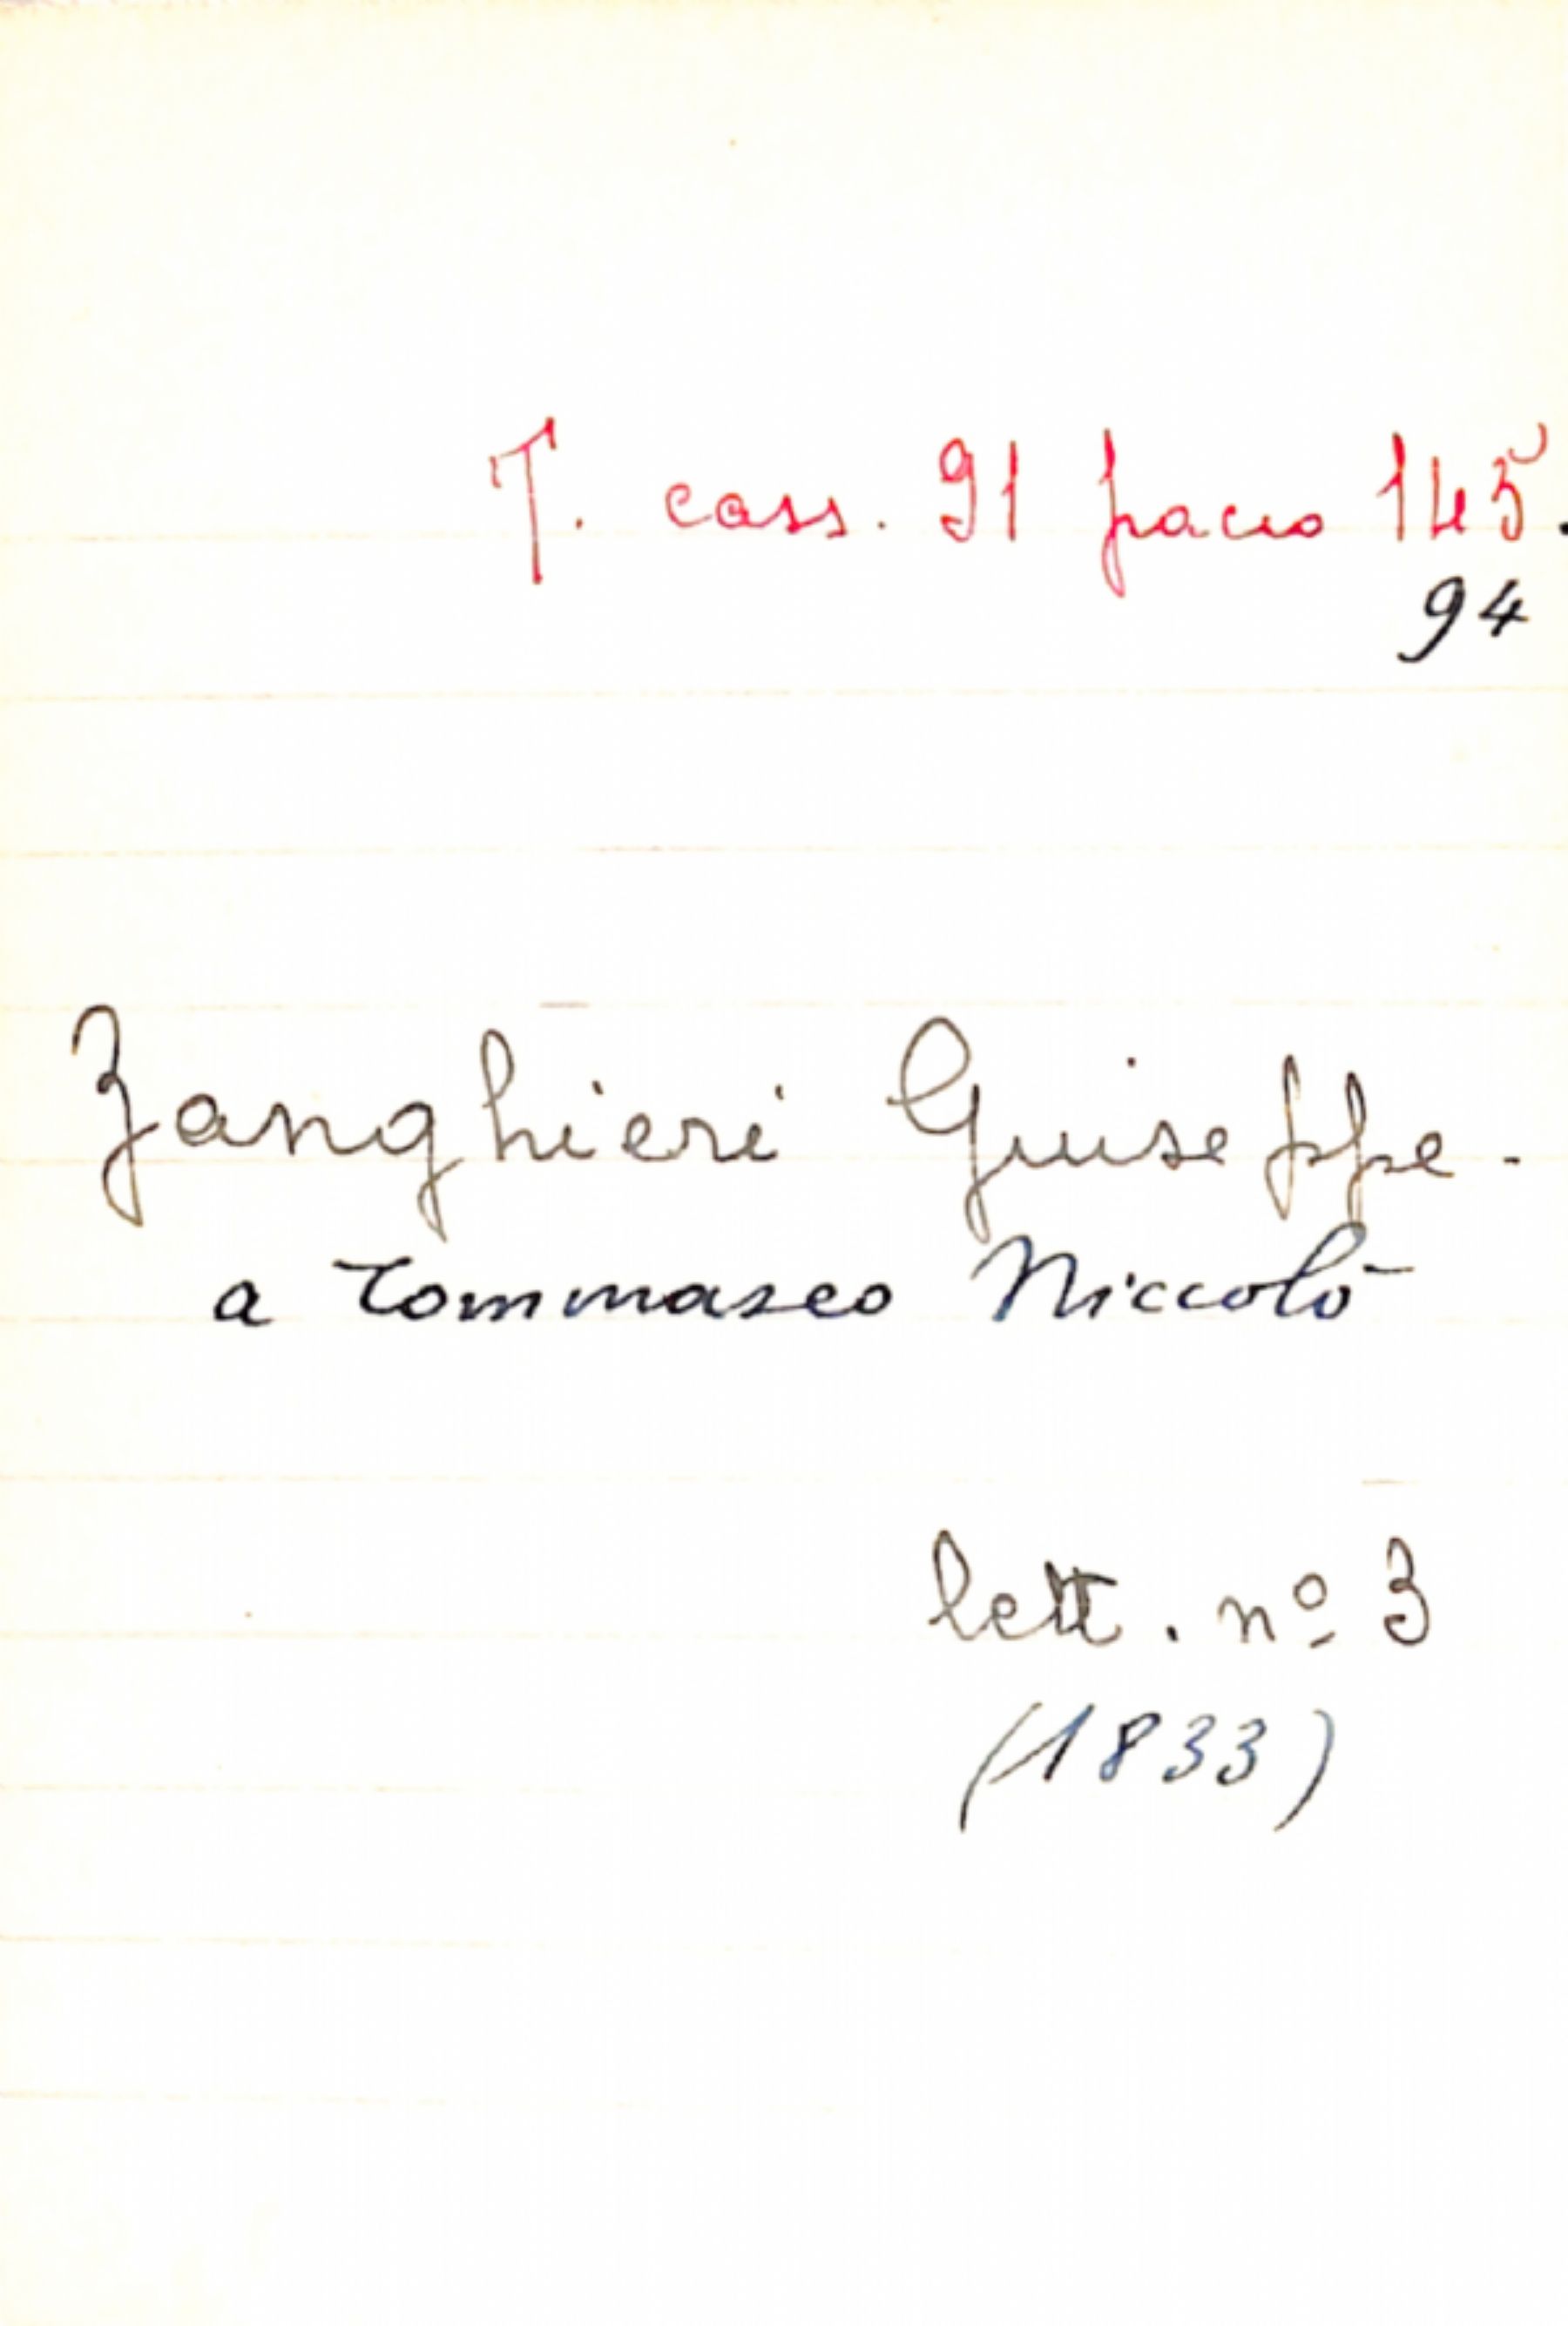 T. cass. 91 pacco 145.
94
Zanghieri Giuseppe.
a Tommaseo Niccolò
lett. nº 3
(1833)